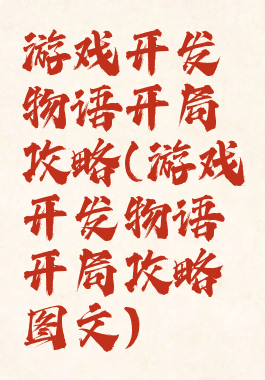 游戏开发
物语开局
攻略(游戏
开发物语
开局攻略
图文)